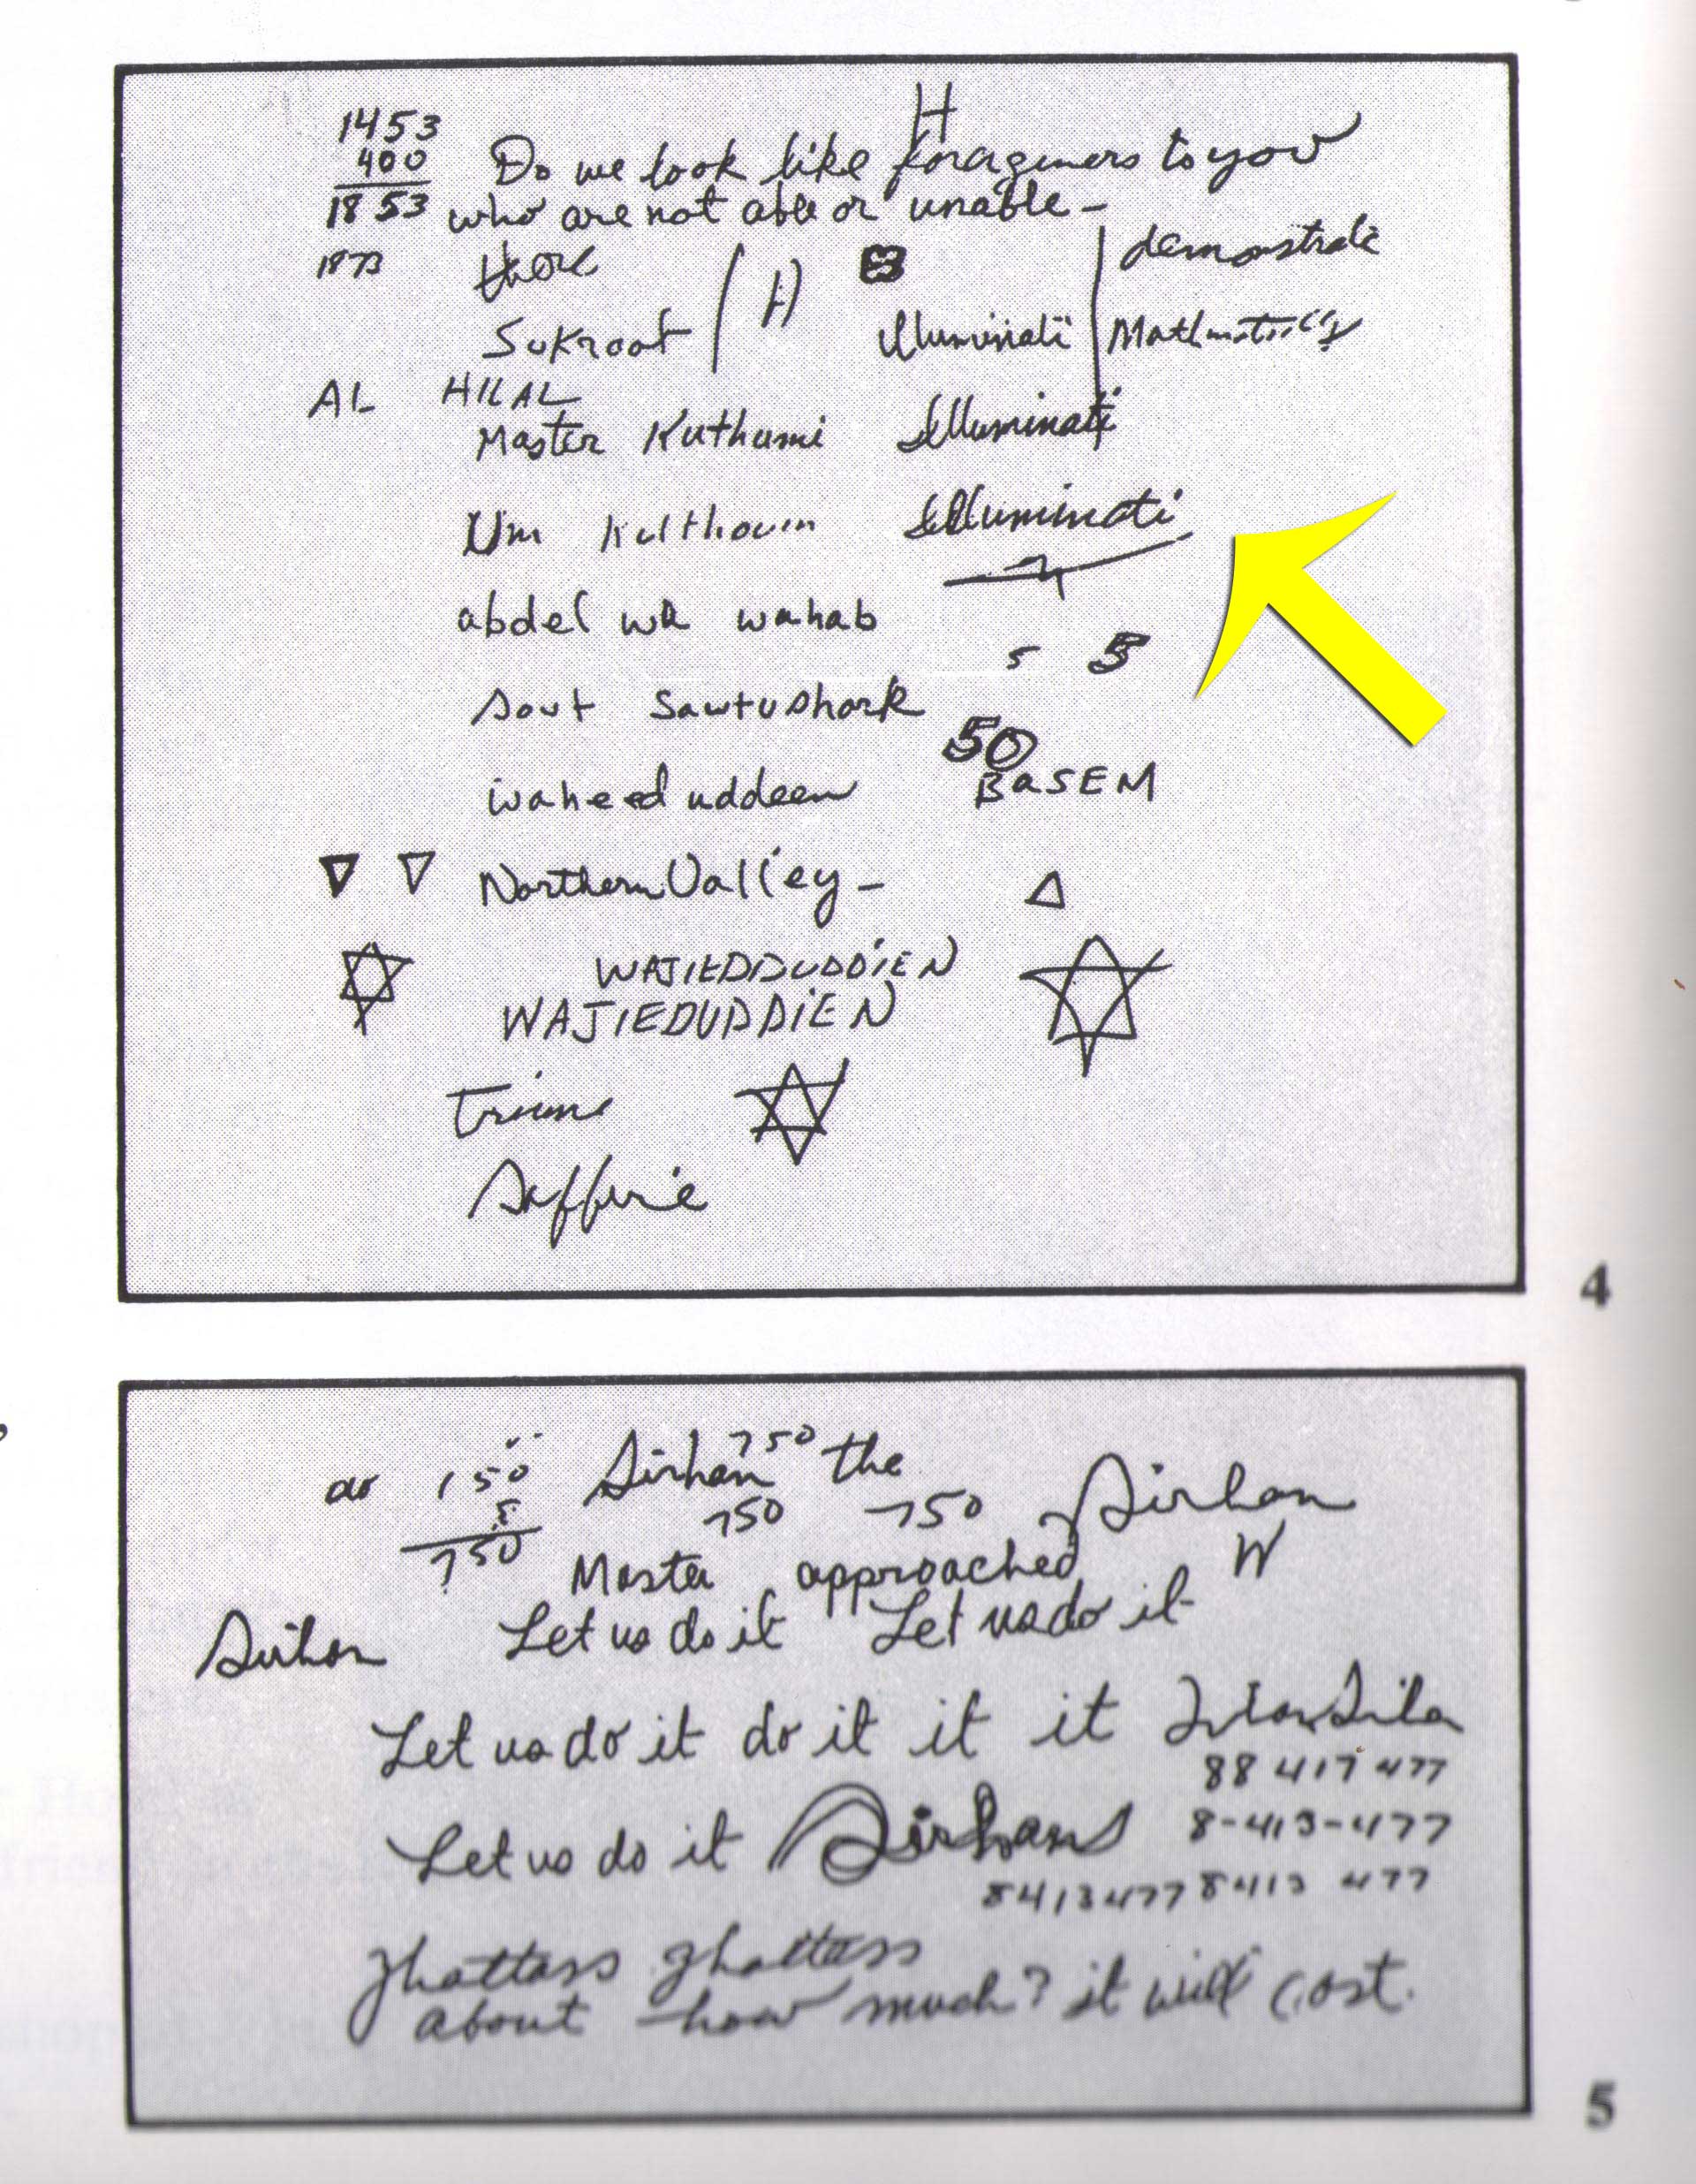 H
1453
400
1853
1873
Do we look like forageners to you
who are not able or unable –
Sukraat
H
Illuminati
demonstrate
AL HILAL
Master Kuthumi Illuminati
Um Kulthoum Illuminati
abdel wa wahab
5 5
sout Sawtushark
50
waheed uddeen BaSEM
Northern Valley –
WAJIEDDUDDIEN
WAJIEDUDDIEN
4
750
150 Sirhan the
5
750 750 750 Sirhan
Master approached W
Sirhan Let us do it Let us do it
Let us do it do it it it
88 417 477
Let us do it Sirhan 8-413-477
8413477 8413 477
Ghattass Ghattass
about how much? it will cost.
5